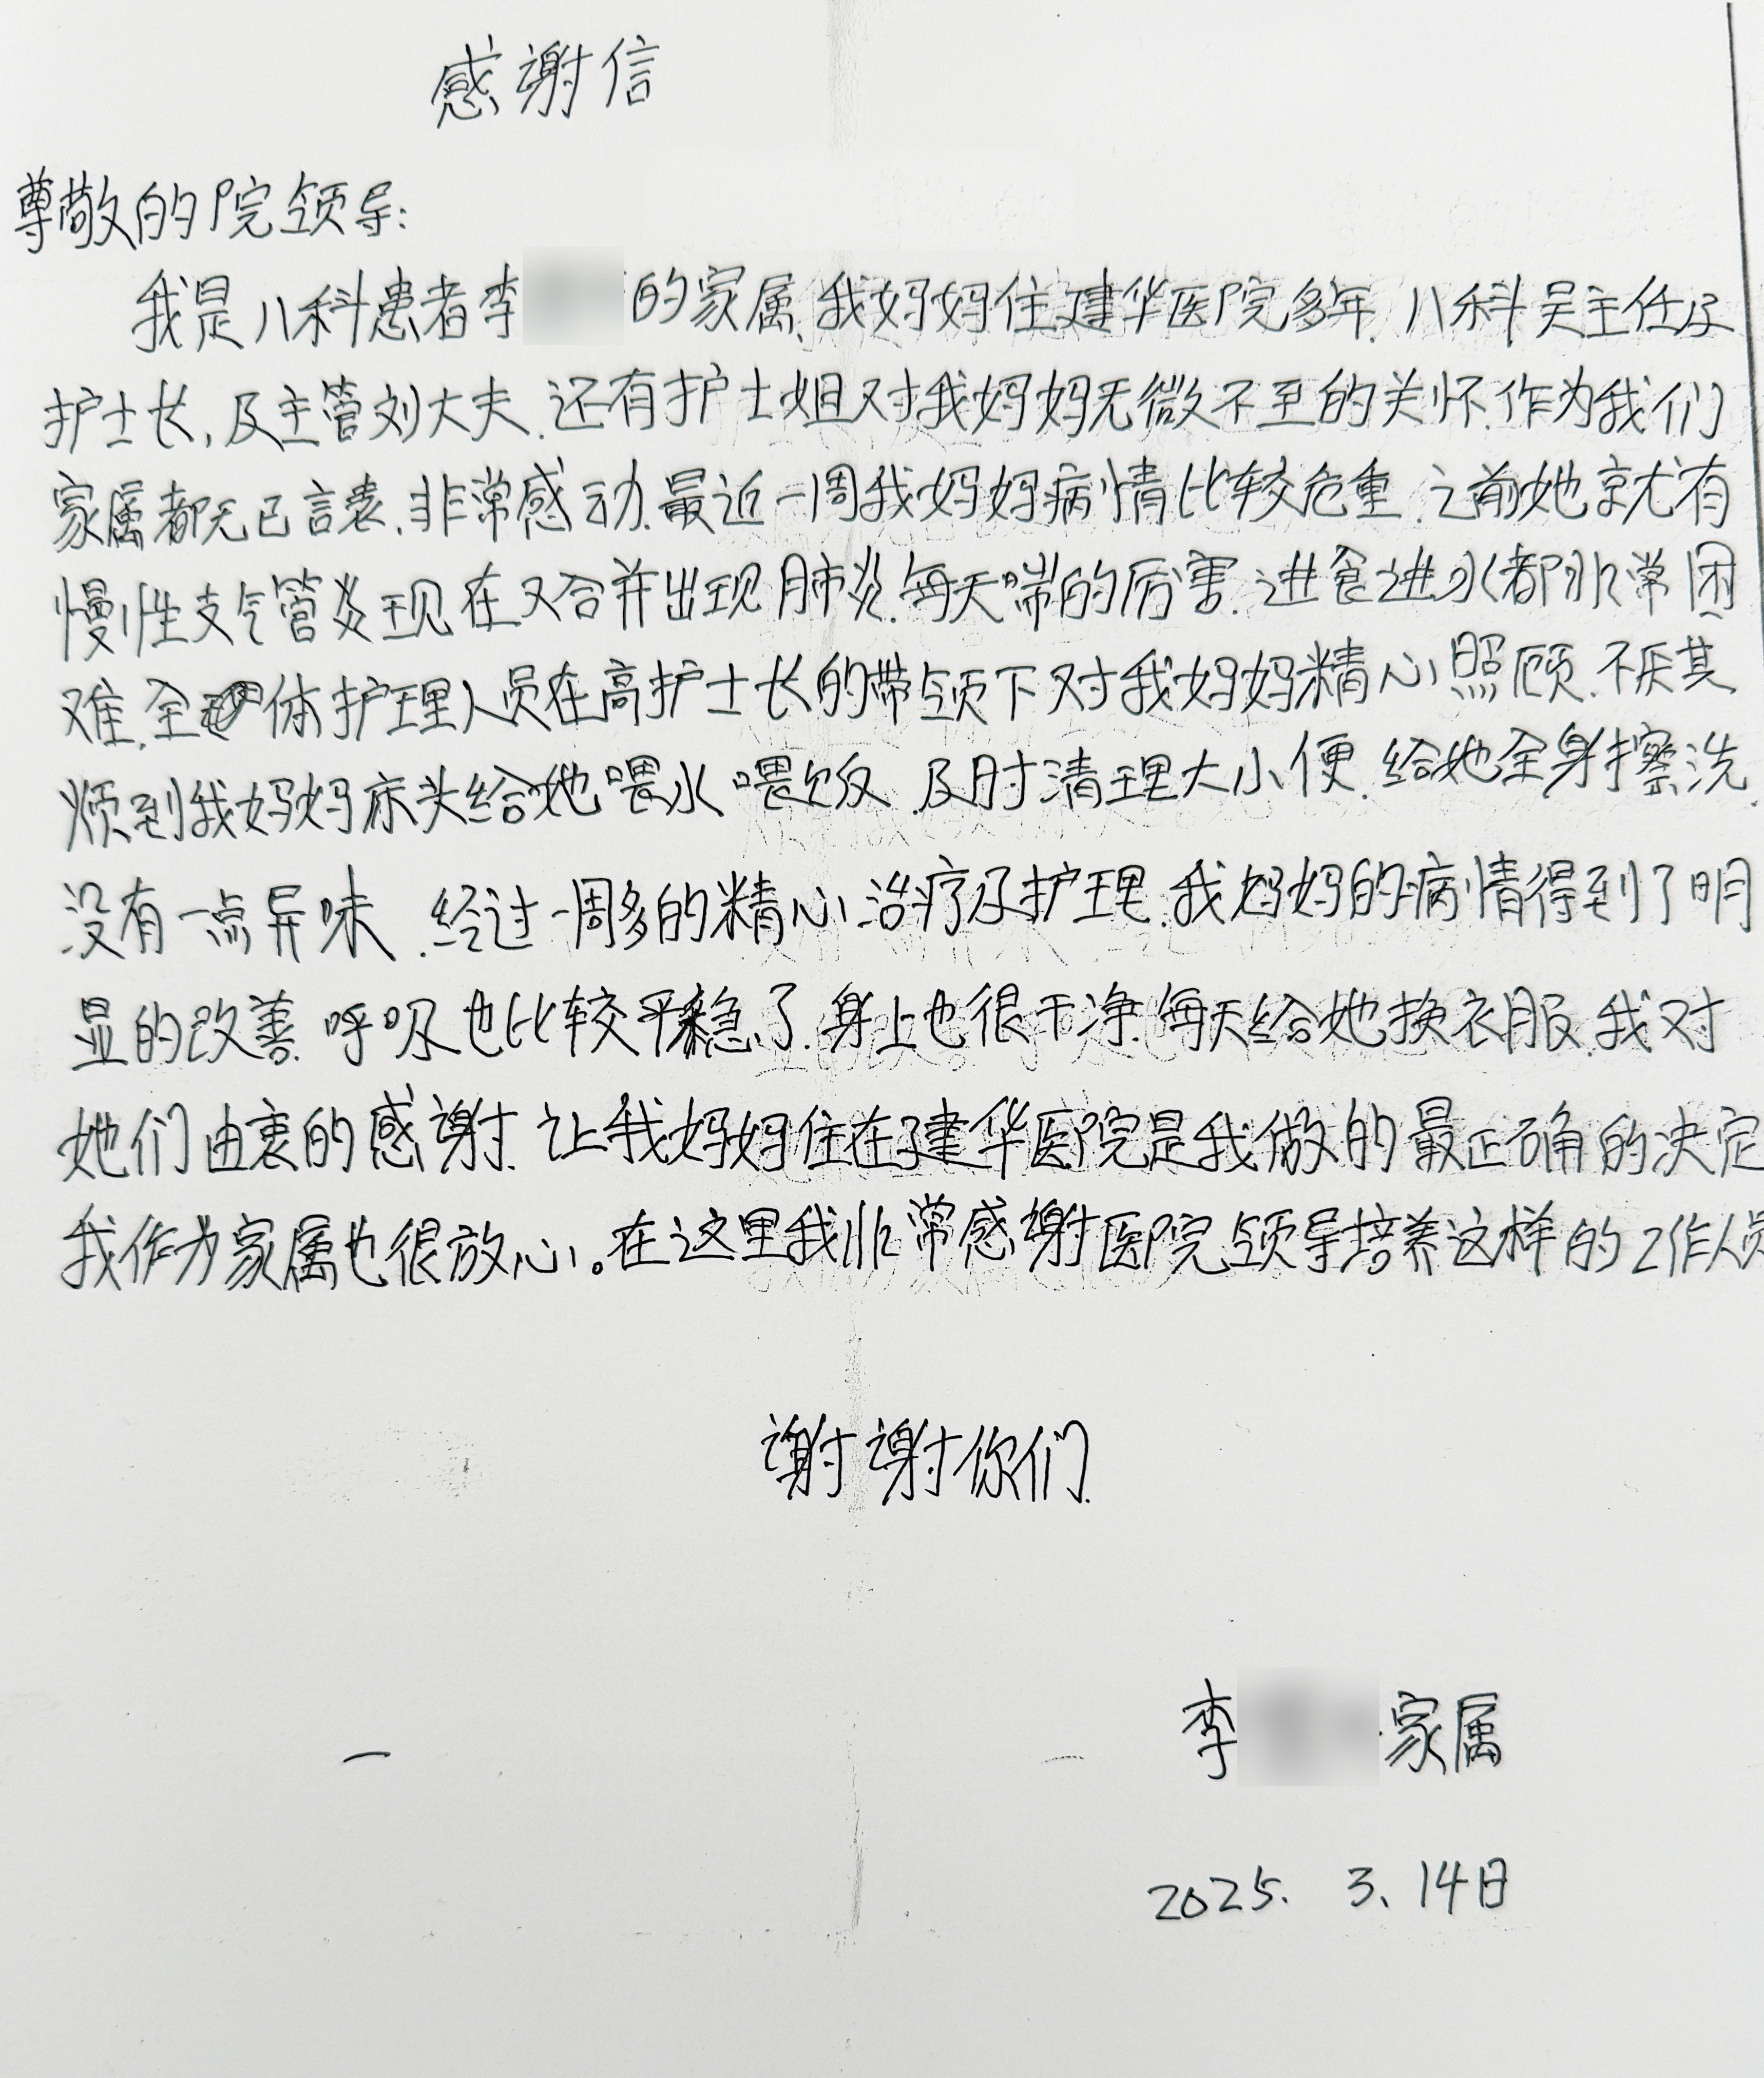 感谢信
尊敬的院领导:
我是八科患者李 的家属.我妈妈住建华医院多年.八科吴主任及
护士长,及主管刘大夫.还有护士姐对我妈妈无微不至的关怀.作为我们
家属都无已言表.非常感动.最近一周我妈妈病情比较危重.之前她就有
慢性支气管炎现在又合并出现肺炎.每天喘的厉害.进食进水都非常困
难.全体护理人员在高护士长的带领下对我妈妈精心照顾.不厌其
烦到我妈妈床头给她喂水喂饭.及时清理大小便.给她全身擦洗.
没有一点异味.经过一周多的精心治疗及护理.我妈妈的病情得到了明
显的改善.呼吸也比较平稳了.身上也很干净.每天给她换衣服.我对
她们由衷的感谢.让我妈妈住在建华医院是我做的最正确的决定
我作为家属也很放心。在这里我非常感谢医院领导培养这样的工作人员
谢谢你们.
李 家属
2025. 3、14日